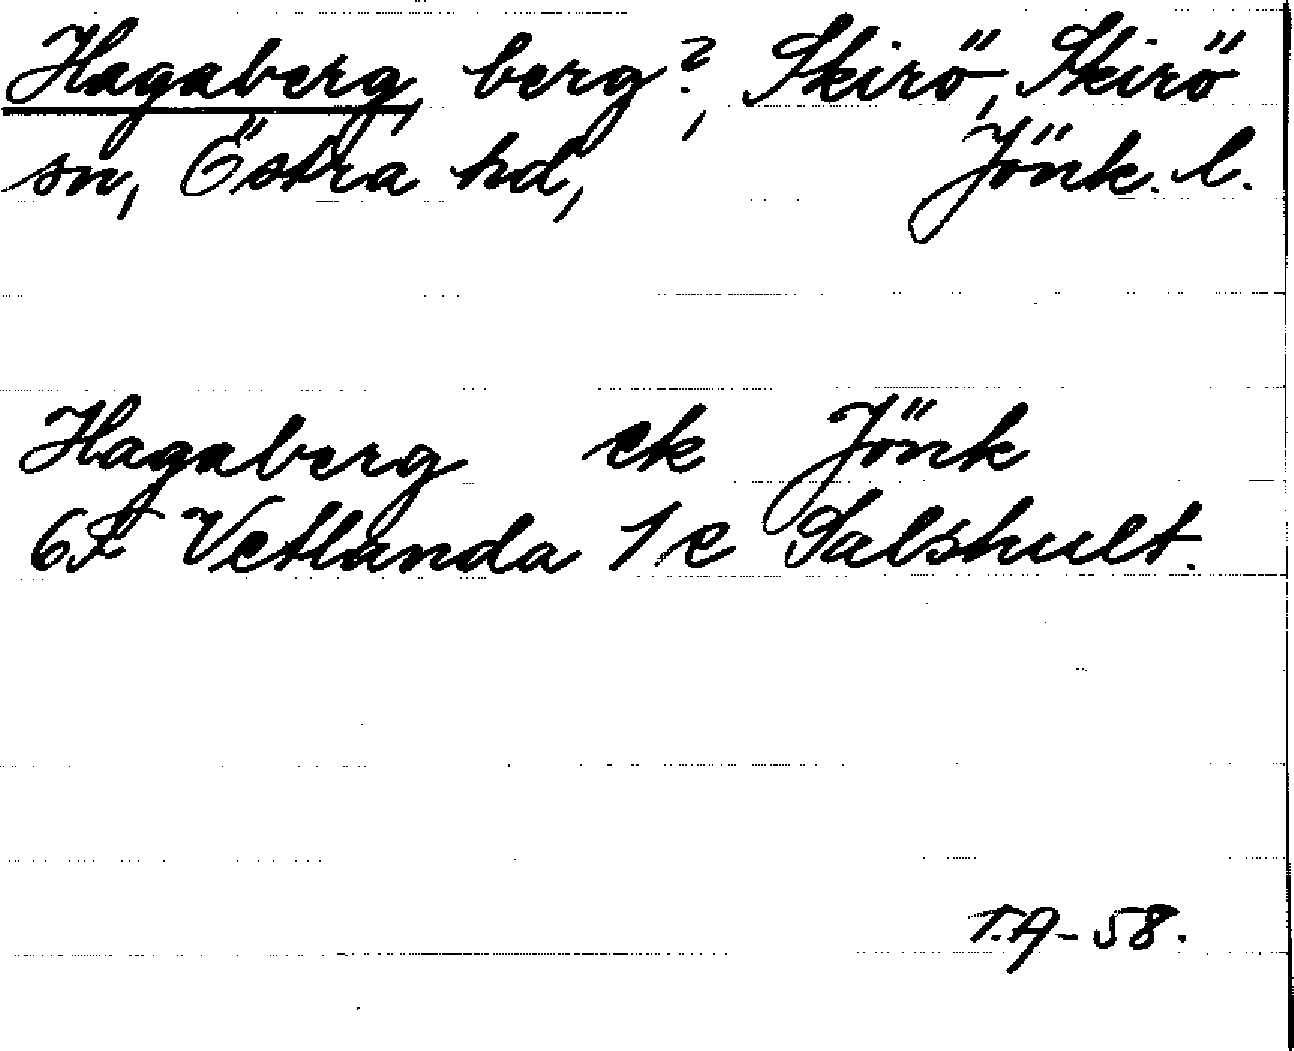 Hagaberg, berg?, Skirö, Skirö
sn, Östra hd, Jönk. l.
Hagaberg ek Jönk
6F Vetlanda 1e Salshult.
T.A-58.